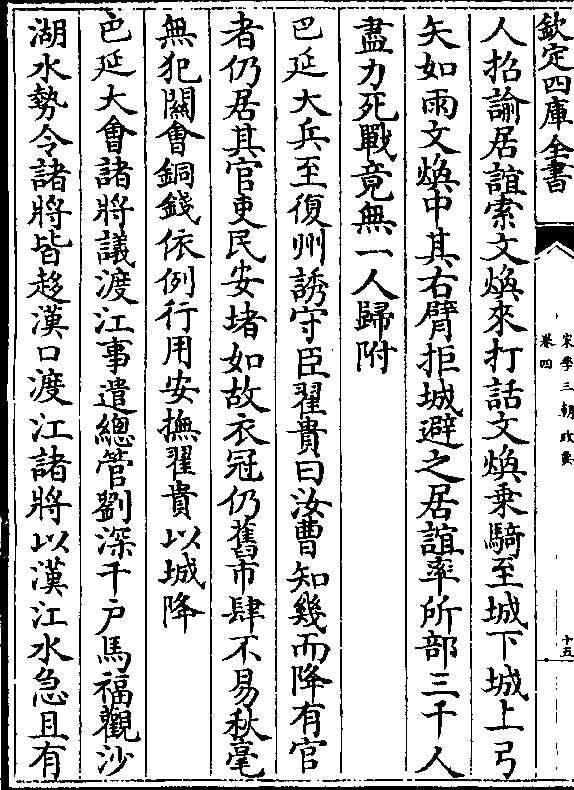 欽定四庫全書
宋季三朝政要
卷四
十五
人招諭居誼索文煥來打話文煥乗騎至城下城上弓
矢如雨文煥中其右臂拒城避之居誼率所部三千人
盡力死戰竟無一人歸附
巴延大兵至復州誘守臣翟貴曰汝曹知幾而降有官
者仍居其官吏民安堵如故衣冠仍舊市肆不易秋毫
無犯關會銅錢依例行用安撫翟貴以城降
巴延大會諸將議渡江事遣總管劉深千户馬福觀沙
湖水勢令諸將皆趍漢口渡江諸將以漢江水急且有